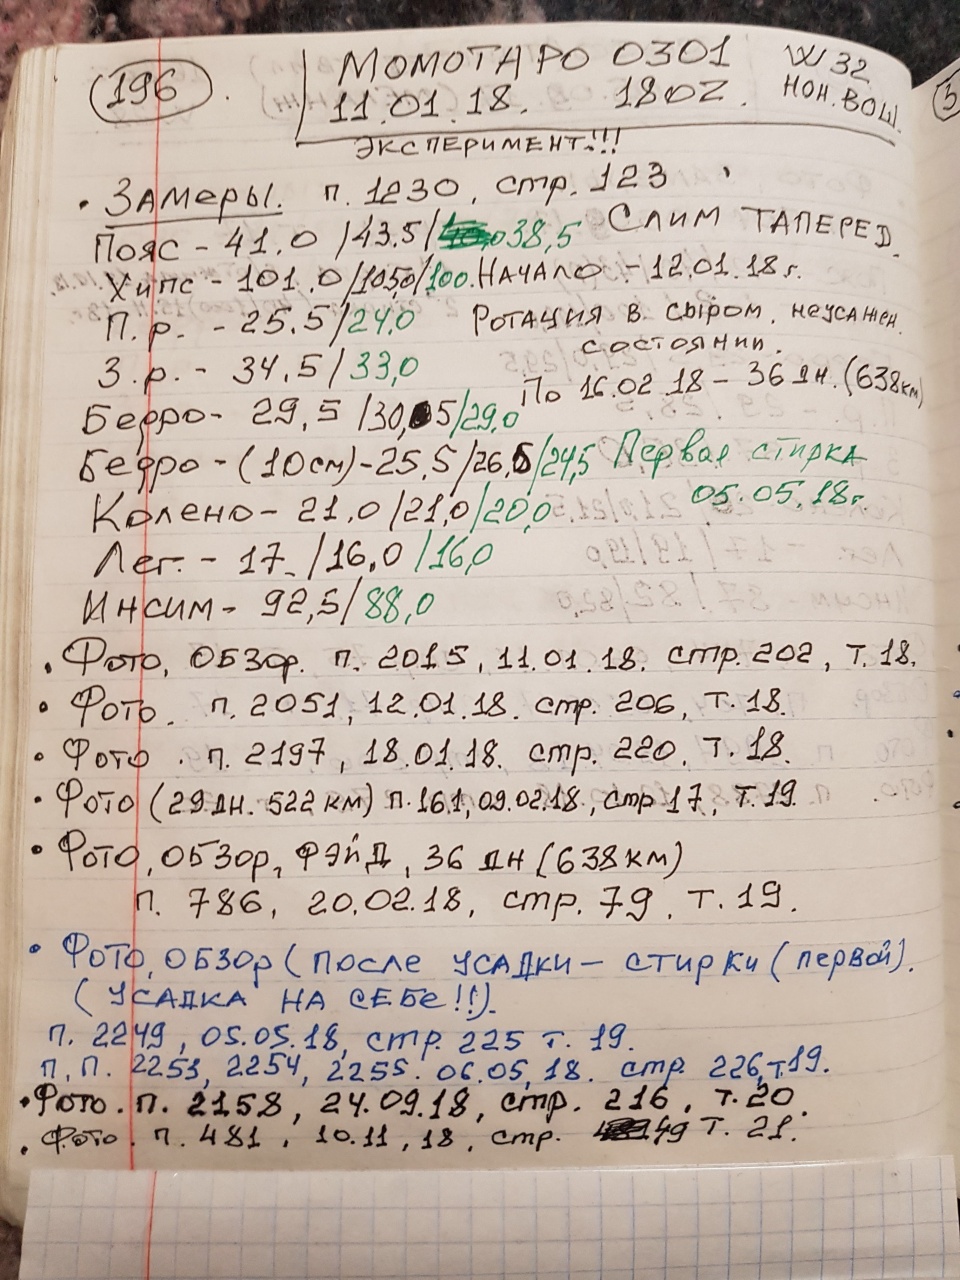 196.
МОМОТАРО 0301
W 32
11.01.18. 18OZ.
НОН.ВОШ.
ЭКСПЕРИМЕНТ!!!
• ЗАМЕРЫ. п. 1230, стр. 123
Пояс - 41.0 /43.5/ 38,5 СЛИМ ТАПЕРЕД.
Хипс - 101.0/105,0/100. НАЧАЛО - 12.01.18 г.
П.р. - 25.5/24,0 РОТАЦИЯ В СЫРОМ, неусажен.
состоянии.
З.р. - 34,5/33,0 По 16.02.18 - 36 дн. (638 км)
Бедро - 29,5 /30,5/29,0
Бедро - (10 см) - 25,5/26,5/24,5 Первая стирка
05.05.18 г.
Колено - 21.0/21,0/20,0
Лег. - 17 /16,0 /16,0
Инсим - 92,5/88,0
• Фото, ОБЗОР. п. 2015, 11.01.18. стр. 202, Т. 18.
• Фото. п. 2051, 12.01.18. стр. 206, Т. 18.
• Фото. п. 2197, 18.01.18. стр. 220, Т. 18.
• Фото (29 дн. 522 км) п. 161, 09.02.18, стр 17, Т. 19.
• Фото, ОБЗОР, ФЭЙД, 36 дн (638 км)
п. 786, 20.02.18, стр. 79, Т. 19.
• Фото, ОБЗОР (ПОСЛЕ УСАДКИ - СТИРКИ (первой).
(УСАДКА НА СЕБЕ!!).
п. 2249, 05.05.18, стр. 225 Т. 19.
п.п. 2253, 2254, 2255. 06.05.18. стр. 226, т19.
• Фото. п. 2158, 24.09.18, стр. 216, Т. 20.
• Фото. п. 481, 10.11,18, стр. 49 Т. 21.